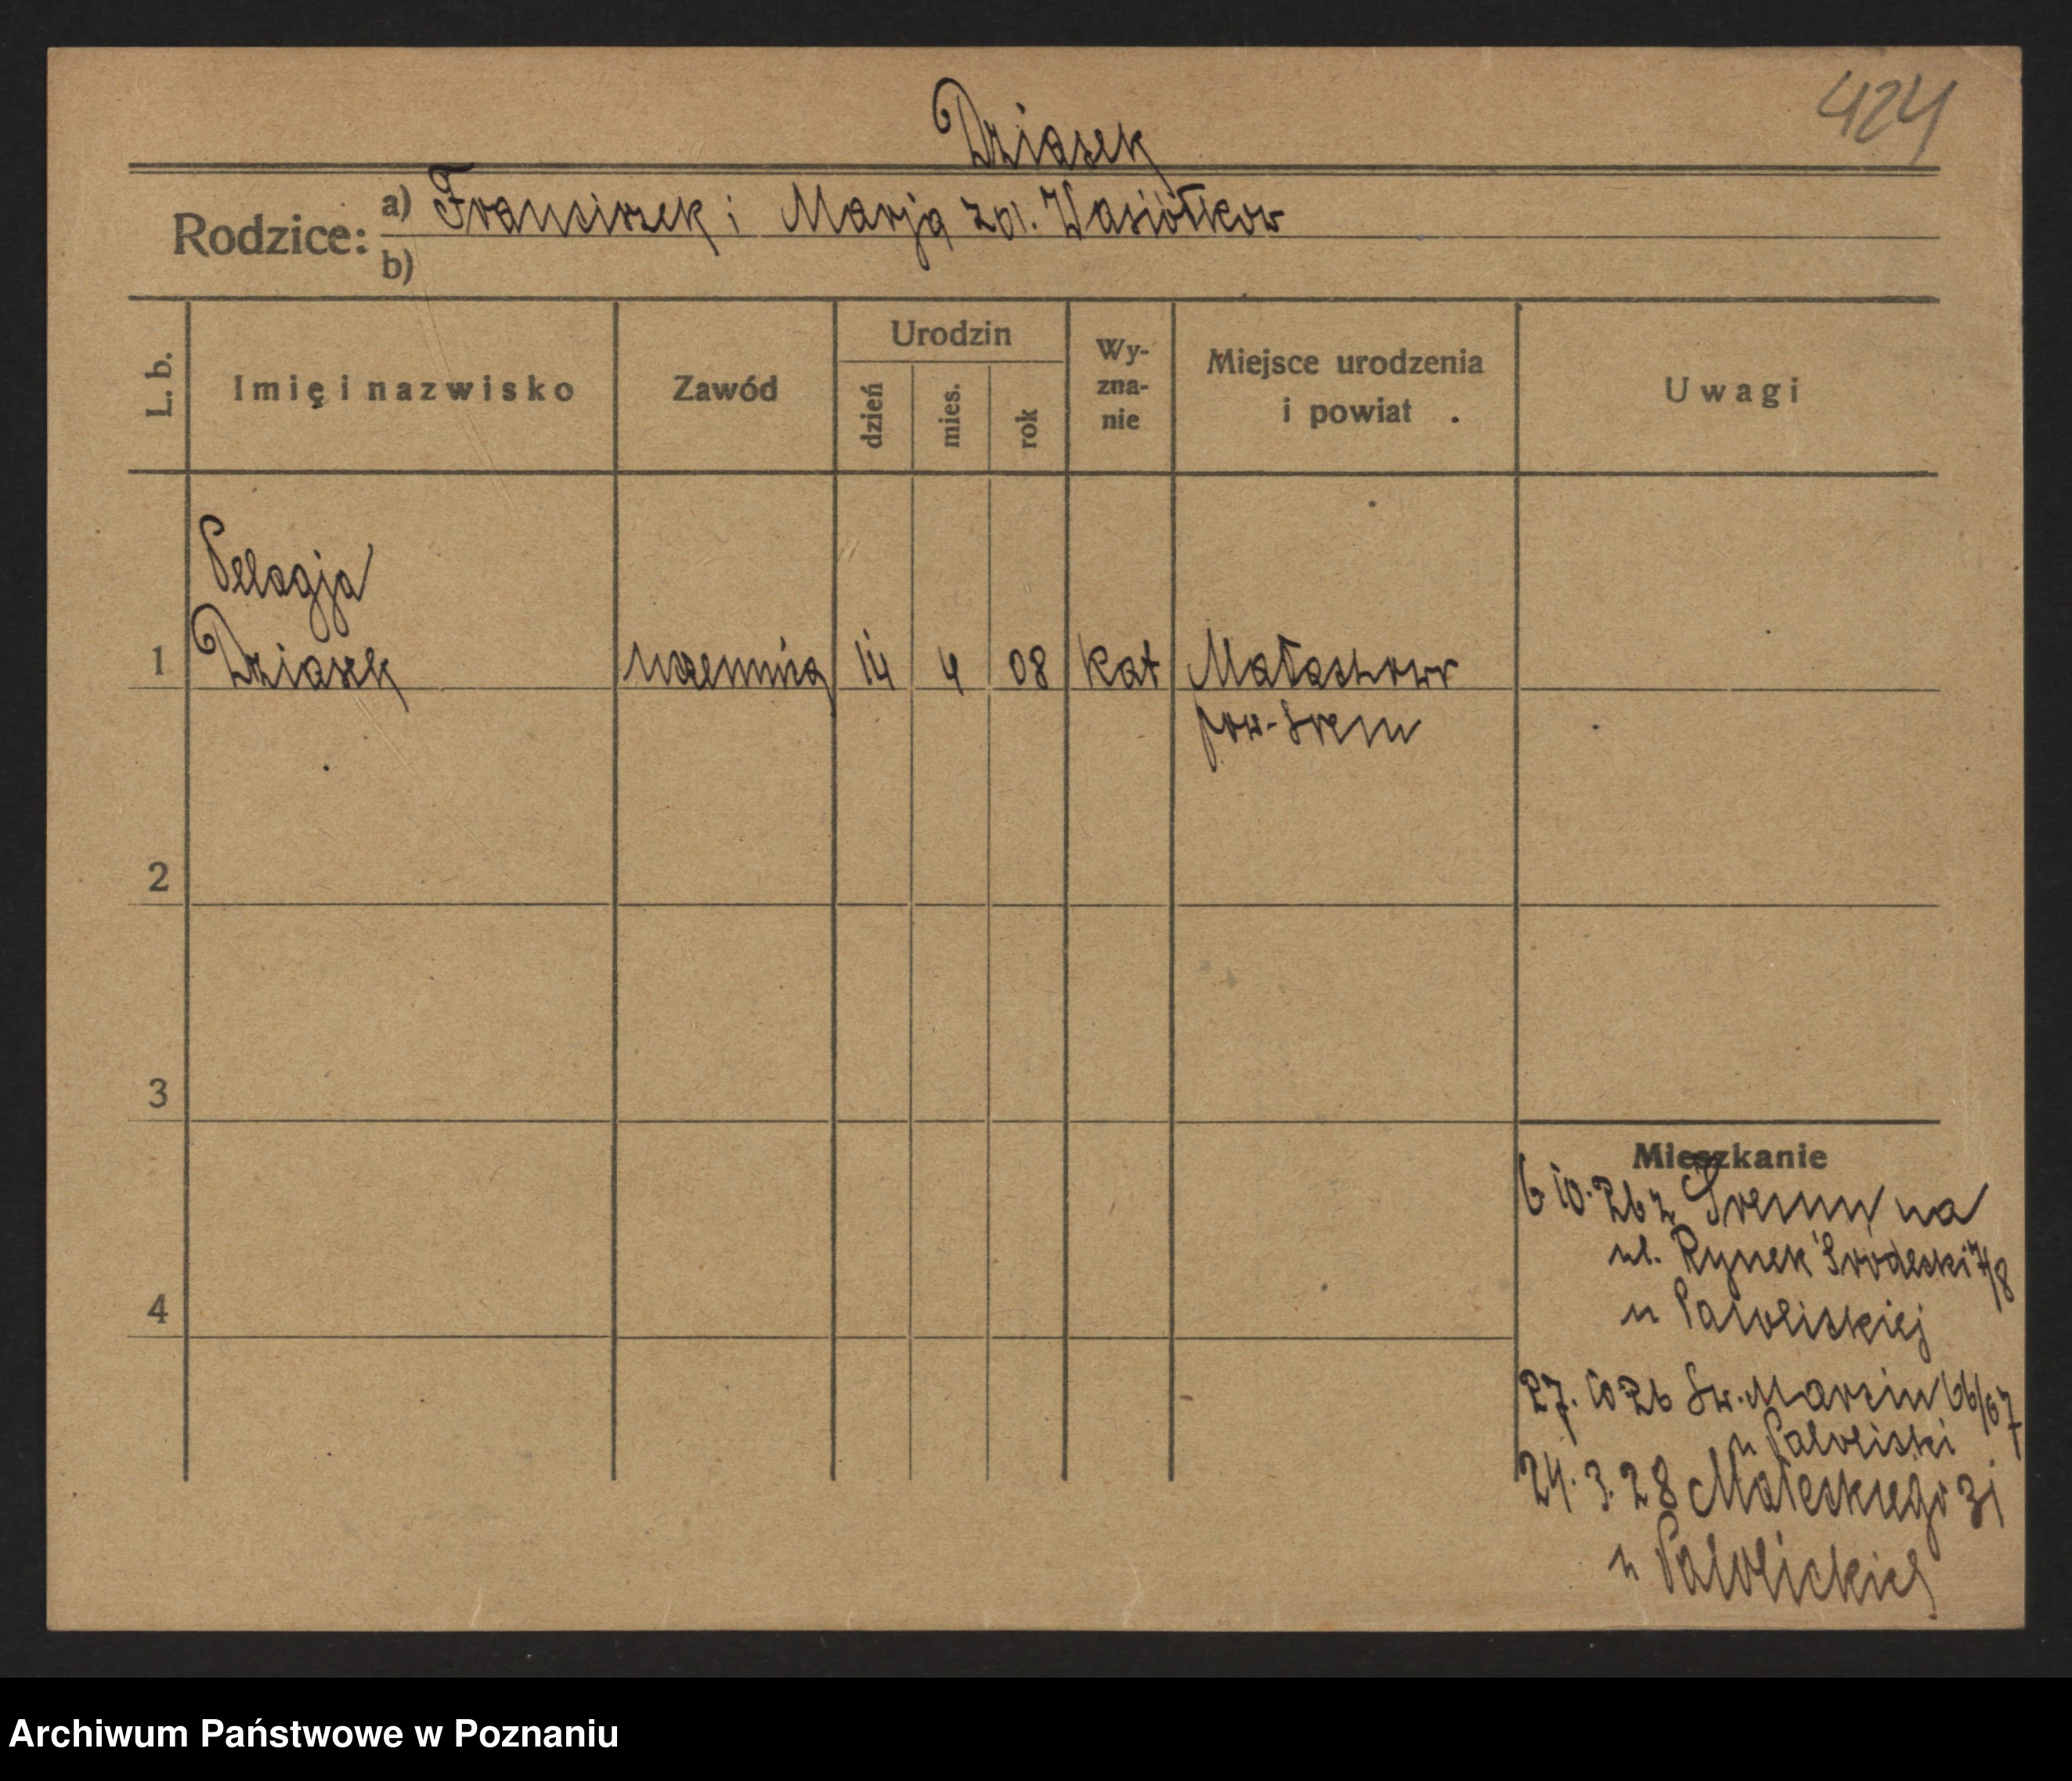 424
Dziasek
Rodzice: a) Franciszek i Marja zd. Wasiołkow
b)
L. b. Imię i nazwisko Zawód Urodzin dzień mies. rok Wyznanie Miejsce urodzenia i powiat Uwagi
Pelagja
1 Dziasek uczennica 14 4 08 kat
pow. Śrem
2
3
4
Mieszkanie
6 10. 26 z Śremu na
ul. Rynek Śródecki 7/8
u
27. 10 26 Św. Marcin 66/67
u
24. 3. 28 31
u
Archiwum Państwowe w Poznaniu